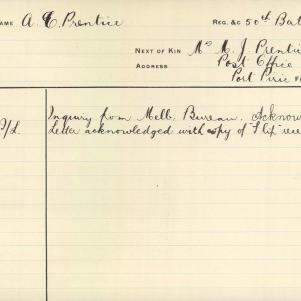 NAME A. E. Prentice REG. &C 50th Bat
NEXT OF KIN Mrs M. J. Prentic
ADDRESS Post Office
Port Pirie
Inquiry from Melb. Bureau. Acknow
Letter acknowledged with copy of Slip